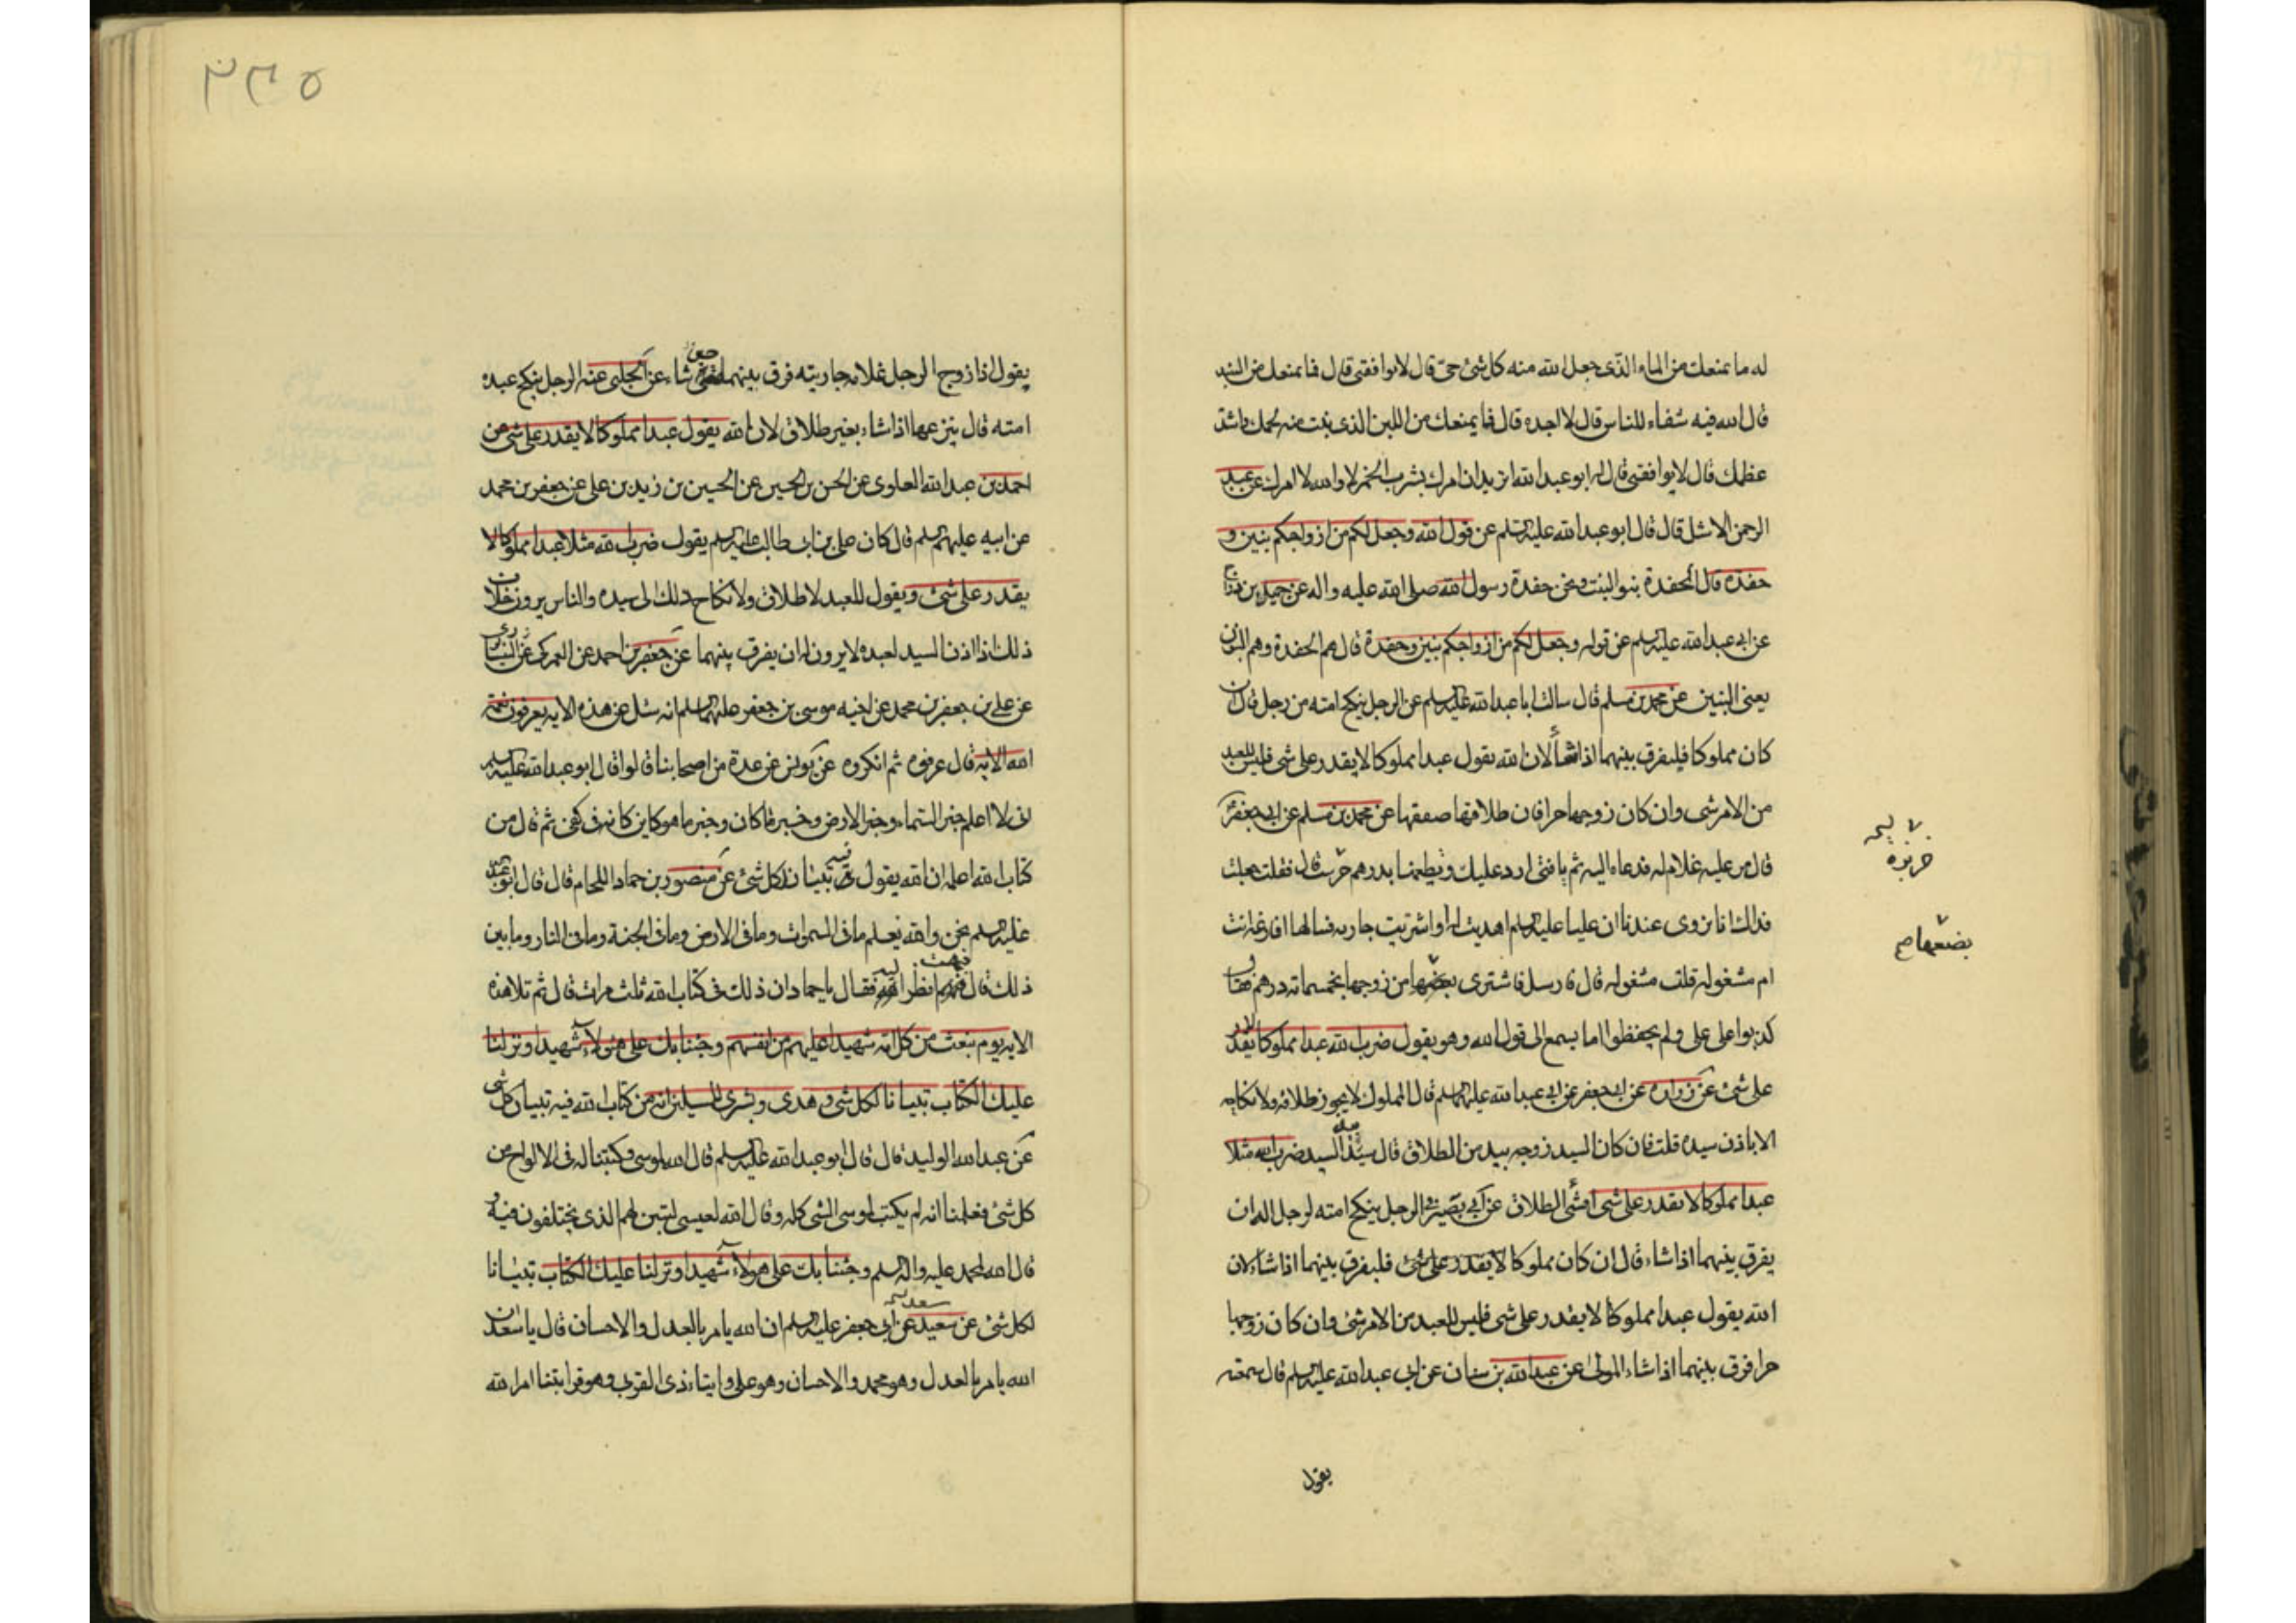 له ما يمنعك من الماء الذى جعل الله منه كل شئ حى قال لا يوافقنى قال فما يمنعك من
قال الله فيه شفاء للناس قال لا اجده قال فما يمنعك من اللبن الذى نبت منه لحمك واشتد
عظمك قال لا يوافقنى قال له ابو عبد الله اتريد ان امرك بشرب الخمر لا والله لا امرك عن عبد
الرحمن الاشل قال قال ابو عبد الله عليه السلم عن قول الله وجعل لكم من ازواجكم بنين و
حفدة قال الحفدة بنو البنت ونحن حفدة رسول الله صلى الله عليه واله عن جميل بن دراج
عن ابى عبد الله عليه السلم عن قوله وجعل لكم من ازواجكم بنين وحفدة قال هم الحفدة وهم العون
يعنى البنين عن محمد بن مسلم قال سالت ابا عبد الله عليه السلم عن الرجل ينكح امته من رجل قال ان
كان مملوكا فليفرق بينهما اذا شأ لان الله يقول عبدا مملوكا لا يقدر على شى فليس للعبد
من الامر شى وان كان زوجها حرا فان طلاقها صفقها عن محمد بن مسلم عن ابى جعفر
قال مر عليه غلام له فدعاه اليه ثم يا فتى ارد عليك وتطعمنا بدرهم قال فقلت جعلت
فداك انا نروى عندنا ان عليا عليه السلم اهديت له او اشتريت جاريه فسالها افارغة انت
ام مشغوله قلت مشغوله قال فارسل فاشترى بضعها من زوجها بخمسمائه درهم فقال
كذبوا على على ولم يحفظوا اما يسمع الى قول الله وهو يقول ضرب الله عبدا مملوكا لا يقدر
على شئ عن زرارة عن ابى جعفر عن ابى عبد الله عليهما السلم قال المملوك لا يجوز طلاقه ولا نكاحه
الا باذن سيده قلت فان كان السيد زوجه بيد من الطلاق قال بيد السيد ضرب الله مثلا
عبدا مملوكا لا يقدر على شى افشئ الطلاق عن ابى بصير فى الرجل ينكح امته لرجل اله ان
يفرق بينهما اذا شاء قال ان كان مملوكا لا يقدر على شئ فليفرق بينهما اذا شاء لان
الله يقول عبدا مملوكا لا يقدر على شى فليس للعبد من الامر شئ وان كان زوجها
حرا فرق بينهما اذا شاء المولى عن عبد الله بن سنان عن ابى عبد الله عليه السلم قال سمعته
يقول
بضعها صح
٢٣٥
يقول اذا زوج الرجل غلامه جاريته فرق بينهما متى شاء عن الحلبى عنه الرجل ينكح عبده
امته قال ينزعها اذا شاء بغير طلاق لان الله يقول عبدا مملوكا لا يقدر على شى عن
احمد بن عبد الله العلوى عن الحسن بن الحسين عن الحسين بن زيد بن على عن جعفر بن محمد
عن ابيه عليهم السلم قال كان على بن ابى طالب عليه السلم يقول ضرب الله مثلا عبدا مملوكا لا
يقدر على شئ ويقول للعبد لا طلاق ولا نكاح ذلك الى سيده والناس يرون خلاف
ذلك اذا اذن السيد لعبده لا يرون له ان يفرق بينهما عن جعفر بن احمد عن العمركى عن النيسابورى
عن على بن جعفر بن محمد عن اخيه موسى بن جعفر عليهما السلم انه سئل عن هذه الايه يعرفون نعمة
الله الايه قال عرفوه ثم انكروه عن يونس عن عدة من اصحابنا قالوا قال ابو عبد الله عليه السلم
انى لا اعلم خبر السماء وخبر الارض وخبر ما كان وخبر ما هو كاين كانه فى كفى ثم قال من
كتاب الله اعلمه ان الله يقول فيه تبيان كل شئ عن منصور بن حماد اللحام قال قال ابو عبد الله
عليه السلم نحن والله نعلم ما فى السموات وما فى الارض وما فى الجنة وما فى النار وما بين
ذلك قال فبهت انظر اليه فقال يا حماد ان ذلك فى كتاب الله ثلث مرات قال ثم تلا هذه
الايه يوم نبعث من كل امة شهيدا عليهم من انفسهم وجئنا بك على هؤلاء شهيدا ونزلنا
عليك الكتاب تبيانا لكل شئ وهدى وبشرى للمسلمين انه من كتاب الله فيه تبيان كل شى
عن عبد الله الوليد قال قال ابو عبد الله عليه السلم قال الله لموسى وكتبنا له فى الالواح من
كل شئ فعلمنا انه لم يكتب لموسى الشى كله وقال الله لعيسى ليبين لهم الذى يختلفون فيه و
قال الله لمحمد عليه واله السلم وجئنا بك على هؤلاء شهيدا ونزلنا عليك الكتاب تبيانا
لكل شئ عن سعيد عن ابى جعفر عليه السلم ان الله يامر بالعدل والاحسان قال يا سعد ان
الله يامر بالعدل وهو محمد والاحسان وهو على وايتاء ذى القربى وهو قرابتنا امر الله